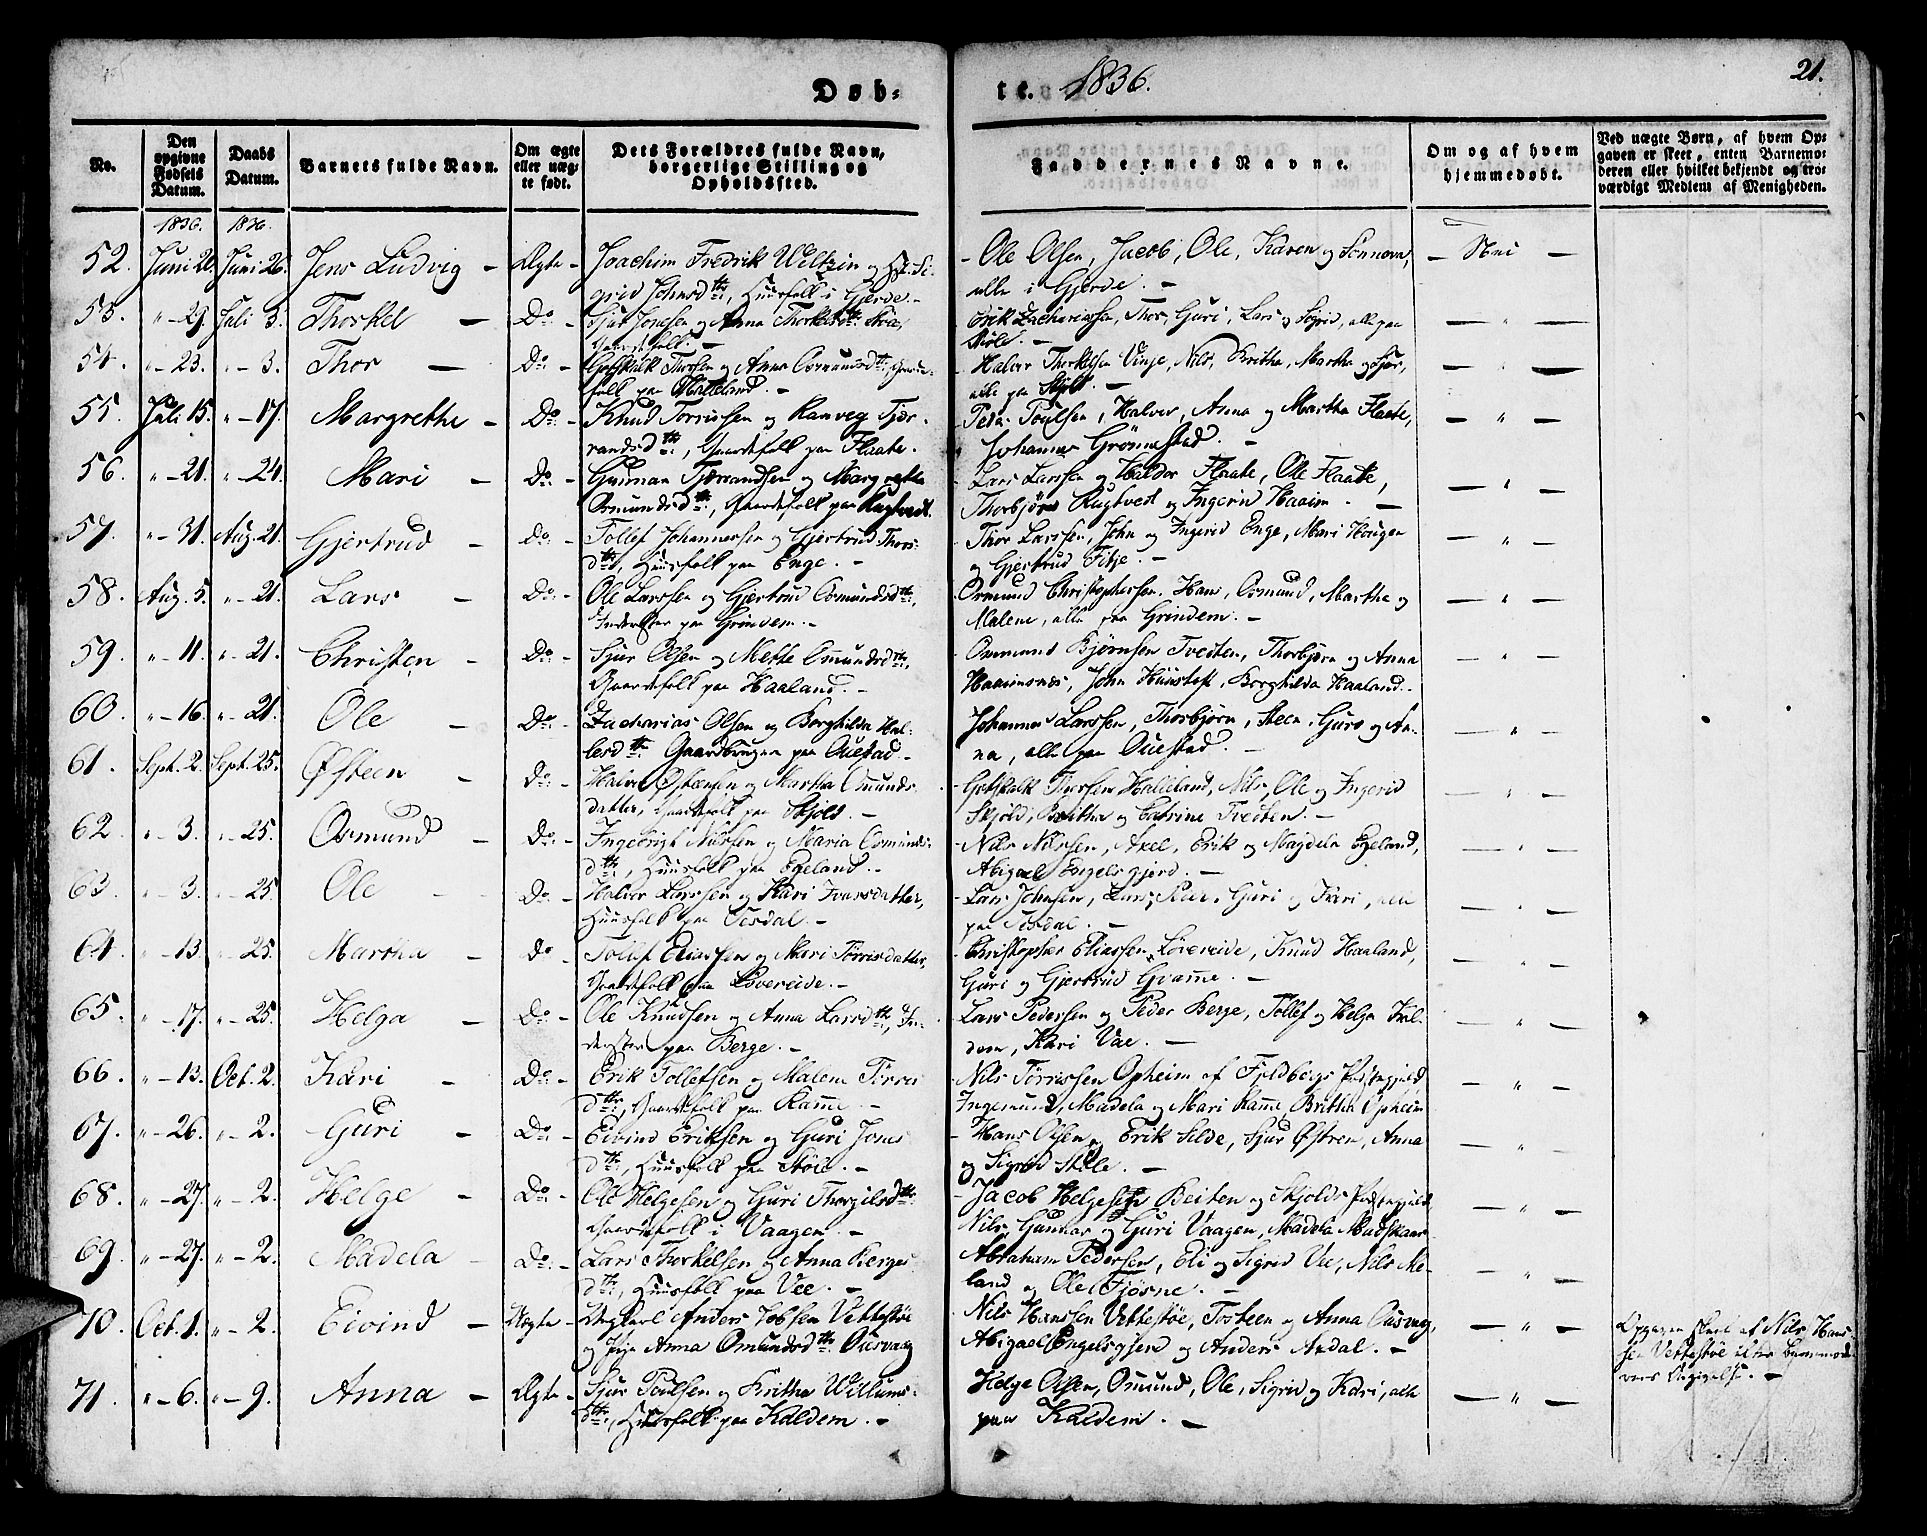 Døb-
te. 1836.
21.
No.
Den opgivne Fødsels Datum.
Daabs Datum.
Barnets fulde Navn.
Om ægte eller uægte født.
Dets Forældres fulde Navn, borgerlige Stilling og Opholdssted.
Faddernes Navne.
Om og af hvem hjemmedøbt.
Ved uægte Børn, af hvem Opgaven er skeet, enten Barnemoderen eller hvilket bekjendt og troværdigt Medlem af Menigheden.
1836. 1836.
52. Juni 20. Juni 26. Jens Ludvig – Ægte – Joachim Fredrik Weltzin og Si-
grid Johnsdtr:, Huusfolk i Gjerde –
– Ole Olsen, Jacob, Ole, Karen og Sønneva,
alle i Gjerde. –
– Nei –
53. " – 29. Juli 3. Thorkel – Do – Sjur Jonsen og Anna Thorkelsdtr:
Gaardfolk. –
Erik Zachariassen, Thor, Guri, Lars og Sigrid, alle paa
– " –
54. " – 23. " – 3. Thor – Do: – Gotskalk Thorsen og Anna Osmundsdtr:
folk paa Halleland. –
Halvor Thorkelsen Vinje, Nils, Britha, Martha og
alle paa
– " –
55. Juli 15. " – 17. Margrethe – Do: – Knud Torrissen og Ranveg Tjær-
randsdtr:, Gaardfolk paa Flaate.
Peder Poulsen, Halver, Anna og Martha Flaate,
Johannes Grønnestad. –
– " –
56. " – 21. " – 24. Mari – Do: – Gunnar Tjærrandsen og Margrethe
Osmundsdtr:, Gaardfolk paa Rugtvedt.
Lars Larssen og Haldor Flaate, Ole Flaate,
Thorbjørn Rugtvedt og Ingerin Haaim –
– " –
57. " – 31. Aug. 21. Gjertrud – Do: – Tollef Johannessen og Gjertrud Thors-
dtr:, Huusfolk paa Enge. –
Thor Larssen, John og Ingerid Enge, Mari Haugen
og Gjertrud Fitje. –
– " –
58. Aug. 5. " – 21. Lars – Do: – Ole Larssen og Gjertrud Osmundsdtr:,
Inderster paa Grindem. –
Ormund Christophersen, Hans, Osmund, Martha og
Malene, alle paa Grindem. –
– " –
59. " – 11. " – 21. Christen – Do: – Sjur Olsen og Mette Omundsdtr:,
Gaardfolk paa Haaland. –
Ommund Bjørnsen Tveiten, Thorbjørn og Anna
Haaimsnes, John Huustoft, Borghilda Haaland.
– " –
60. " – 16. " – 21. Ole – Do – Zacharias Olsen og Borghilda Hal-
lesdtr: Gaardbruger paa Ouestad. –
Johannes Larssen, Thorbjørn, Steen, Guro og An-
na, alle paa Ouestad. –
– " –
61. Sept. 2. Sept. 25. Østeen – Do: – Halvor Østensen og Martha Omunds-
datter, Gaardfolk paa Skjold. –
Gotskalk Thorsen Halleland, Nils, Ole og Ingerid
Skjold, Britha og Cathrine Tveiten. –
– " –
62. " – 3. " – 25. Osmund – Do: – Ingebrigt Nilssen og Maria Osmunds-
dtr:, Huusfolk paa Egeland. –
Nils Nilssen, Axel, Erik og Magdela Egeland,
Abigael Engelsgjerd. –
– " –
63. " – 3. " – 25. Ole – Do. – Halvor Larssen og Kari Ivarsdatter,
Huusfolk paa Tesdal. –
Lars Johnsen, Lars, Peer, Guri og Kari, alle
paa Tesdal. –
– " –
64. " – 13. " – 25. Martha – Do – Tollef Eliassen og Mari Tørrisdatter,
Gaardfolk paa Løvereide. –
Christopher Eliassen Løvereide, Knud Haaland,
Guri og Gjertrud Gjamme. –
– " –
65. " – 17. " – 25. Helga – Do: – Ole Knudsen og Anna Larsdtr:, In-
derster paa Berge. –
Lars Pedersen og Peder Berge, Tollef og Helga Kal-
dem, Kari Vae. –
– " –
66. " – 13. Oct. 2. Kari – Do: – Erik Tollefsen og Malene Tørris-
dtr:, Gaardfolk paa Ramme. –
Nils Tørrissen Opheim af Fjeldbergs Præstegjeld
Ingemund, Madela og Mari Ramme, Britha Opheim
– " –
67. " – 26. " – 2. Guri – Do: – Eivind Eriksen og Guri Jons-
dtr:, Huusfolk paa Støle. –
Hans Olsen, Erik Silde, Sjur Østren, Anna
og Sigrid Støle. –
– " –
68. " – 27. " – 2. Helge – Do: – Ole Helgesen og Guri Thorgilsdtr:
Gaardfolk i Vaagen. –
Jacob Helgesen Beiten og Skjolds Præstegjeld,
Nils, Gunnar og Guri Vaagen, Madela Madskaar
– " –
69. " – 27. " – 2. Madela – Do: – Lars Thorkelsen og Anna Berges-
dtr:, Huusfolk paa Vee. –
Abraham Pedersen, Eli og Sigrid Vee, Nils Me-
land og Ole Fjøsne. –
– " –
70. Oct. 1. " – 2. Eivind – Uægte – Ungkarl Anders Jobsen Vettestøe
og Pige Anna Omundsdtr: Ouesvaag
Nils Hanssen Vettestøe, Tosteen og Anna Ouesvaag,
Abigael Engelsgjerd og Anders Axdal. –
– " –
Opgaven skeet af Nils Hans-
sen Vettestøe efter Barnemode-
rens Angivelse. –
71. " – 6. " – 9. Anna – Ægte – Sjur Poulsen og Britha Willums-
dtr:, Huusfolk paa Kaldem. –
Helge Olsen, Omund, Ole, Sigrid og Kari, alle
paa Kaldem. –
– " –